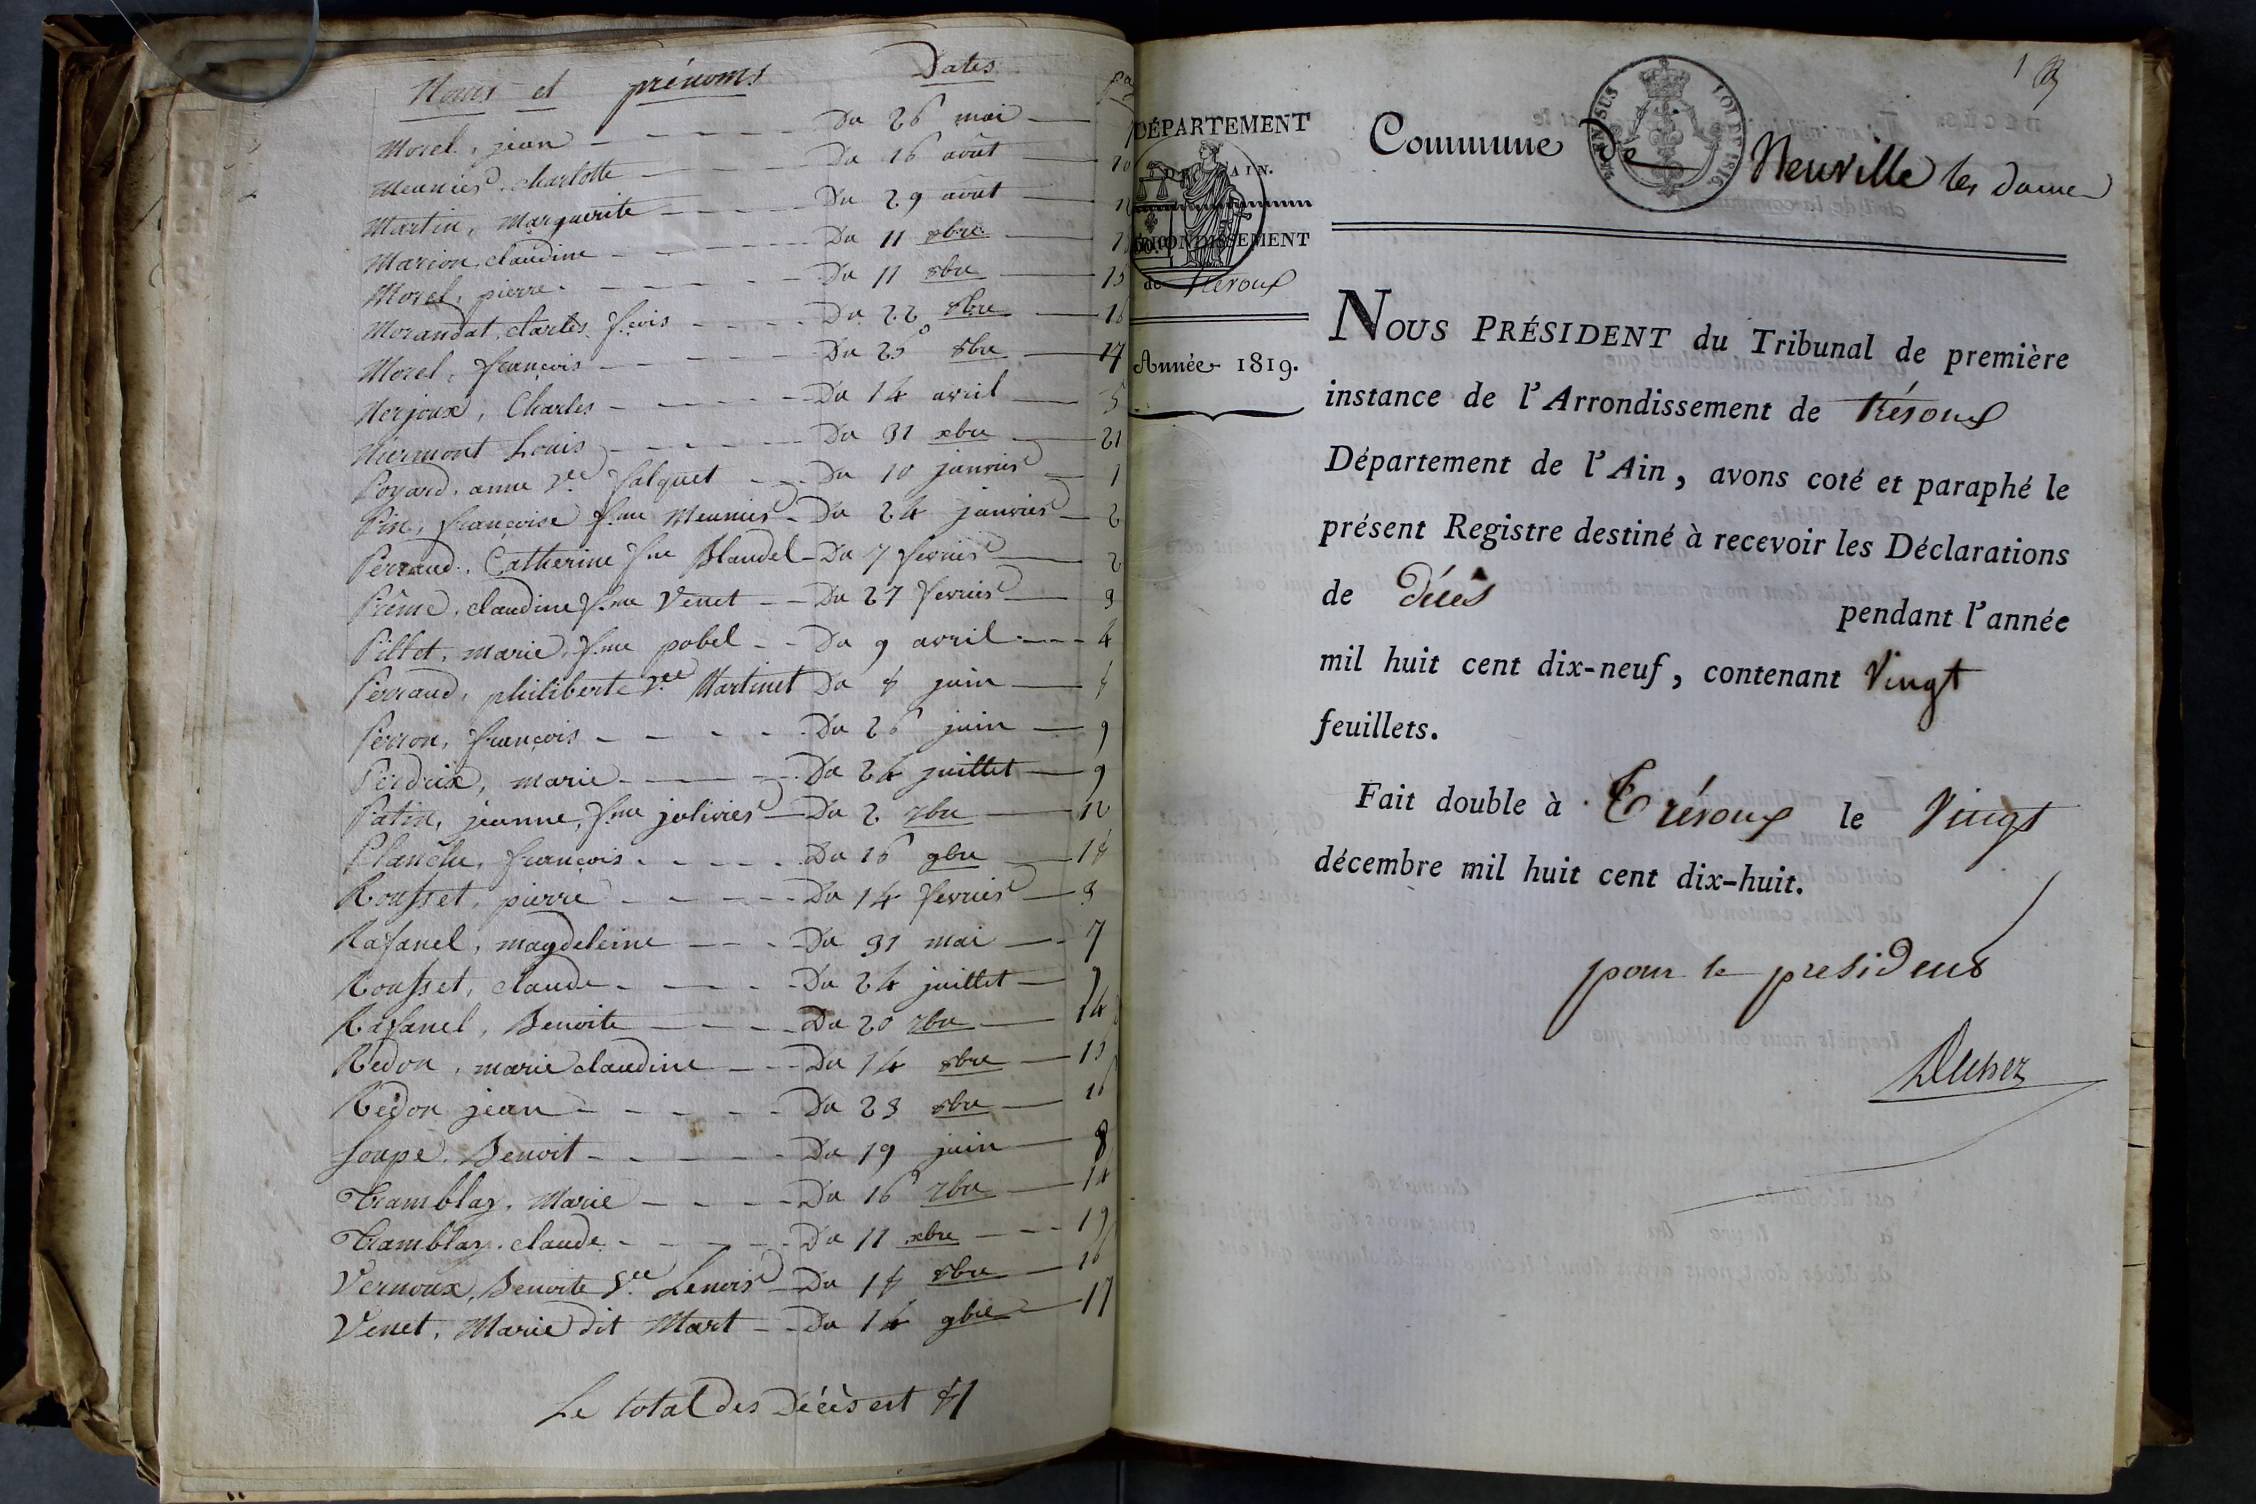 Noms et prénoms Dates
Morel, jean Du 26 mai
Meunier, charlotte Du 16 août 10
Martin, Marguerite Du 29 août
Marion, claudine Du 11 8bre
Morel, pierre Du 11 8bre 15
Morandat, charles, f.cois Du 22 8bre 16
Morel, françois Du 25 8bre 17
Nerjoux, Charles Du 14 avril 5
Niermont Louis Du 31 xbre 21
Poyard, anne v.ve falquet Du 10 janvier 1
Pin, françoise f.me Meunier Du 24 janvier 2
Perraud, Catherine f.me Blandel Du 7 fevrier 2
Prême, claudine f.me Venet Du 27 fevrier 3
Pillet, marie, f.me pobel Du 9 avril 4
Perraud, philiberte v.ve Martinet Du 8 juin 8
Perron, françois Du 26 juin 9
Perdrix, marie Du 24 juillet 9
Patin, jeanne, f.me jolivier Du 2 7bre 10
Planche, françois Du 16 9bre 18
Rousset, pierre Du 14 fevrier 3
Rafanel, magdeleine Du 31 mai 7
Rousset, claude Du 24 juillet 9
Rafanel, Benoite Du 20 7bre 14
Redon, marie claudine Du 14 8bre 15
Redon jean Du 23 8bre 16
Soupe, Benoit Du 19 juin 8
Tramblay, Marie Du 16 7bre 14
Tramblay, claude Du 11 xbre 19
Vernoux, Benoite V.ve Lenoir Du 18 8bre 16
Venet, Marie dit Mart Du 14 9bre 17
Le total des Décès est 81
1
DÉPARTEMENT
DE L'AIN.
ARRONDISSEMENT
de Trévoux
Année 1819.
Commune de Neuville les dames
LOI DE 1816
NOUS PRÉSIDENT du Tribunal de première
instance de l'Arrondissement de Trévoux
Département de l'Ain, avons coté et paraphé le
présent Registre destiné à recevoir les Déclarations
de Décès pendant l'année
mil huit cent dix-neuf, contenant Vingt
feuillets.
Fait double à Trévoux le Vingt
décembre mil huit cent dix-huit.
pour le president